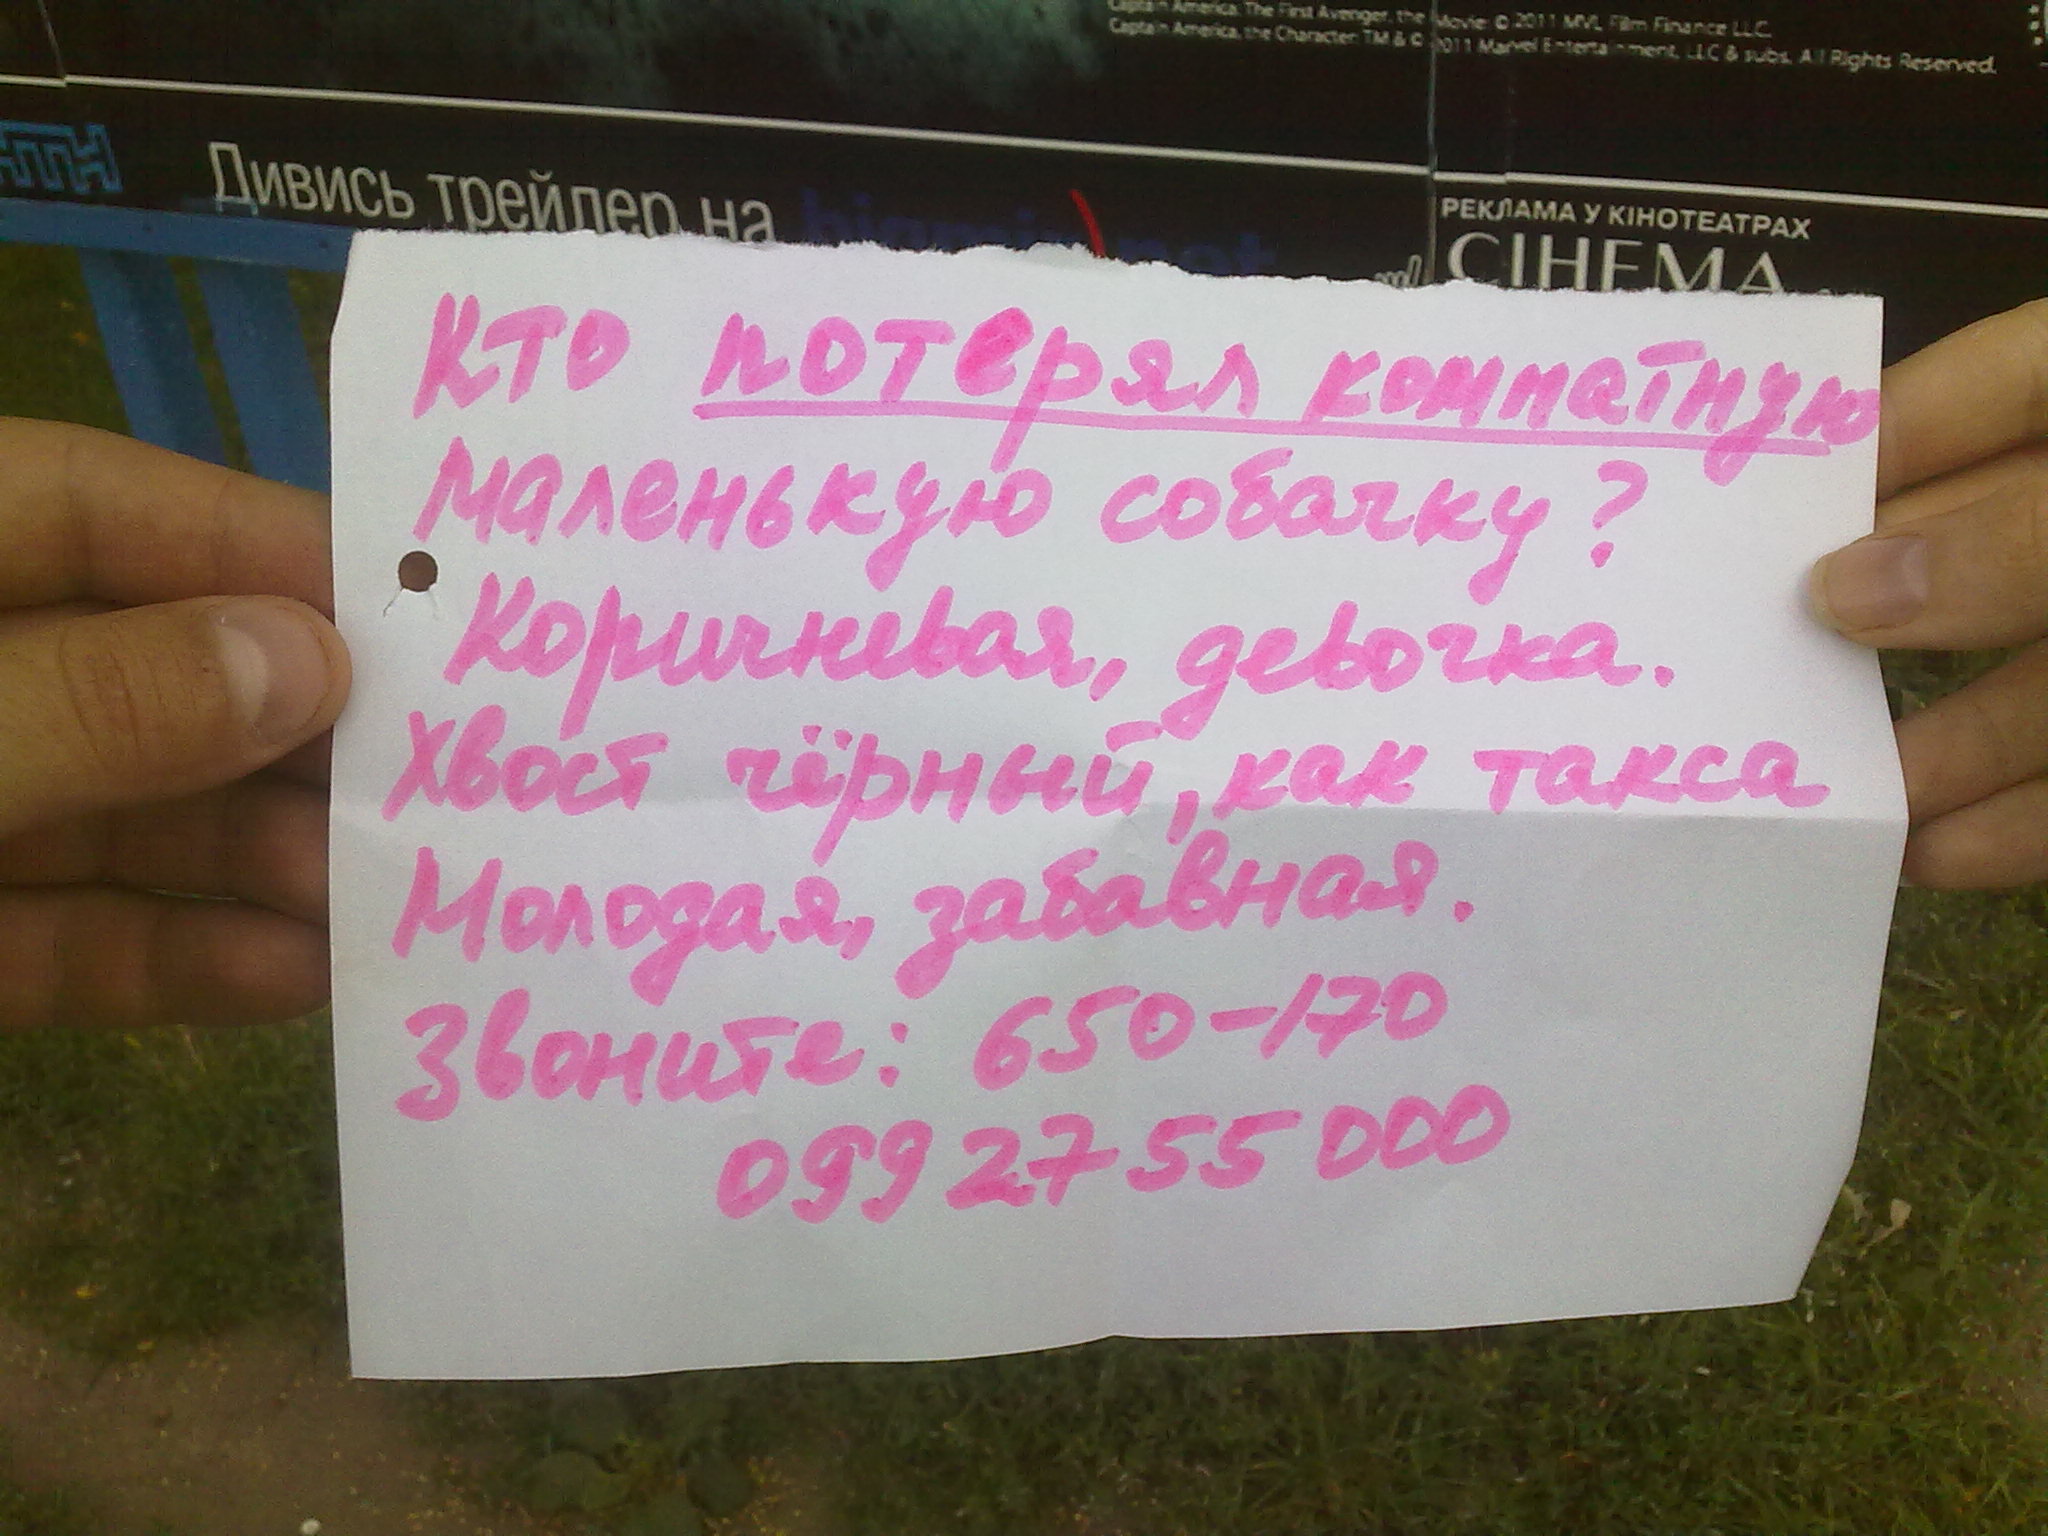 Captain America: The First Avenger, the Movie: © 2011 MVL Film Finance LLC.
Captain America, the Character: TM & © 2011 Marvel Entertainment, LLC & subs. All Rights Reserved.
Дивись трейлер на
РЕКЛАМА У КІНОТЕАТРАХ
СІНЕМА
Кто потерял комнатную
маленькую собачку?
Коричневая, девочка.
Хвост чёрный, как такса
Молодая, забавная.
Звоните: 650-170
099 27 55 000